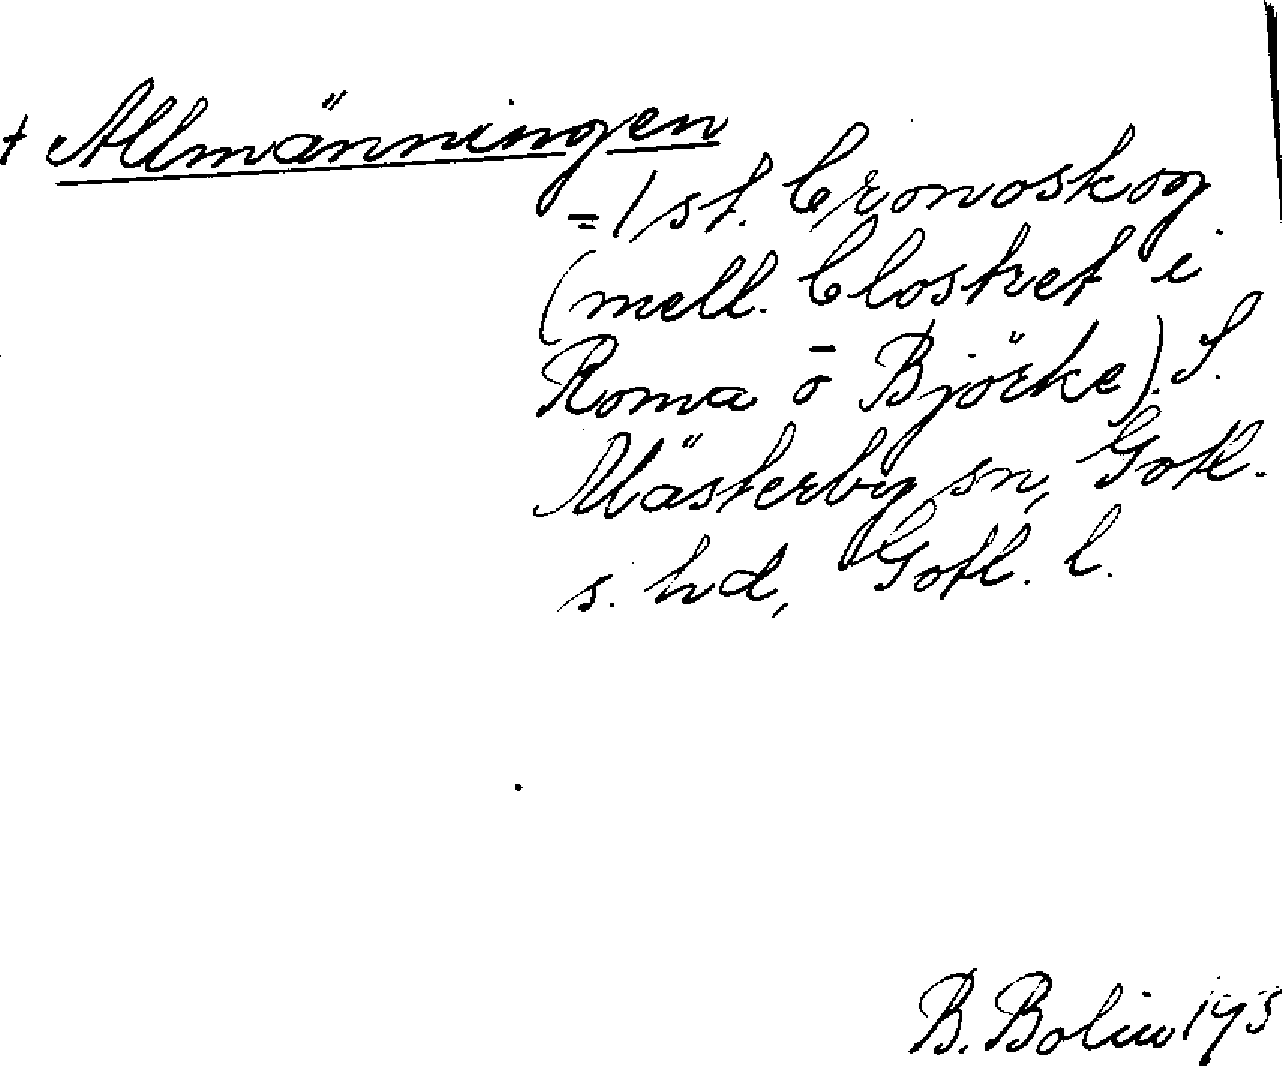 + Allmänningen
= 1 st. Cronoskog
(mell. Clostret i
Roma o Björke). S.
Mästerby sn, Gotl.
s. hd, Gotl. l.
B. Bolin 193